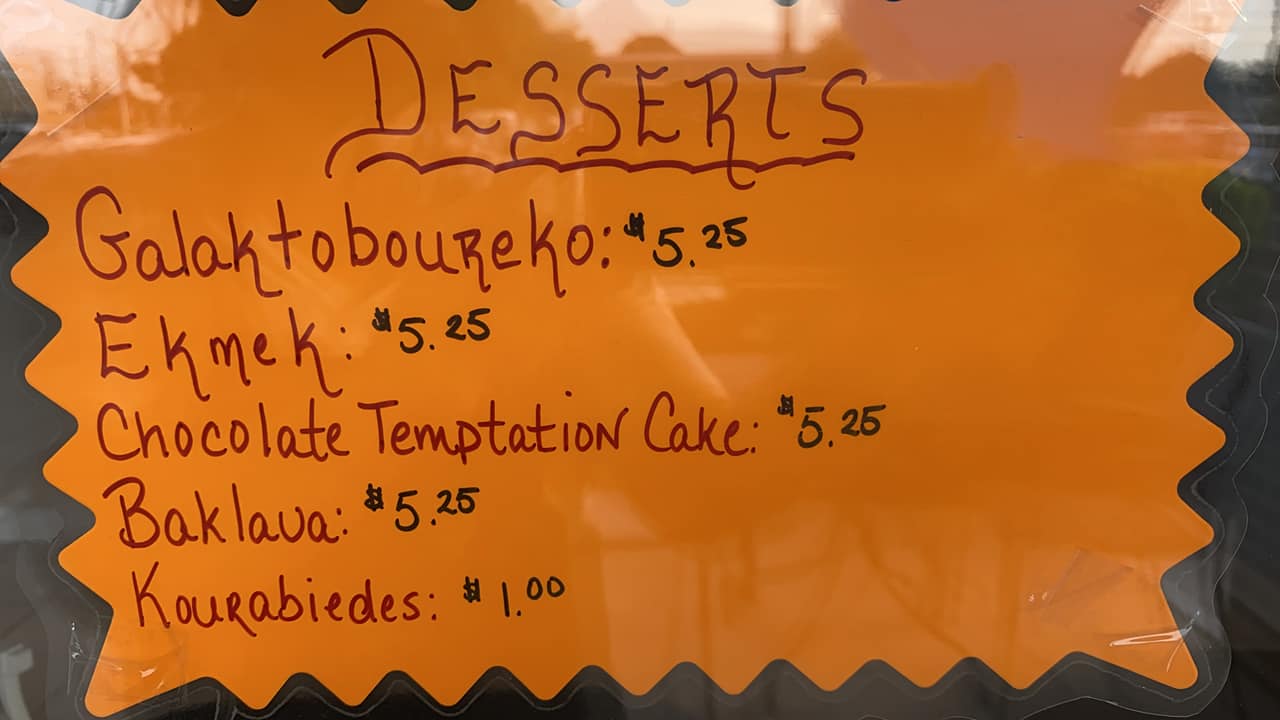 DESSERTS
Galaktoboureko: $5.25
Ekmek: $5.25
Chocolate Temptation Cake: $5.25
Baklava: $5.25
Kourabiedes: $1.00